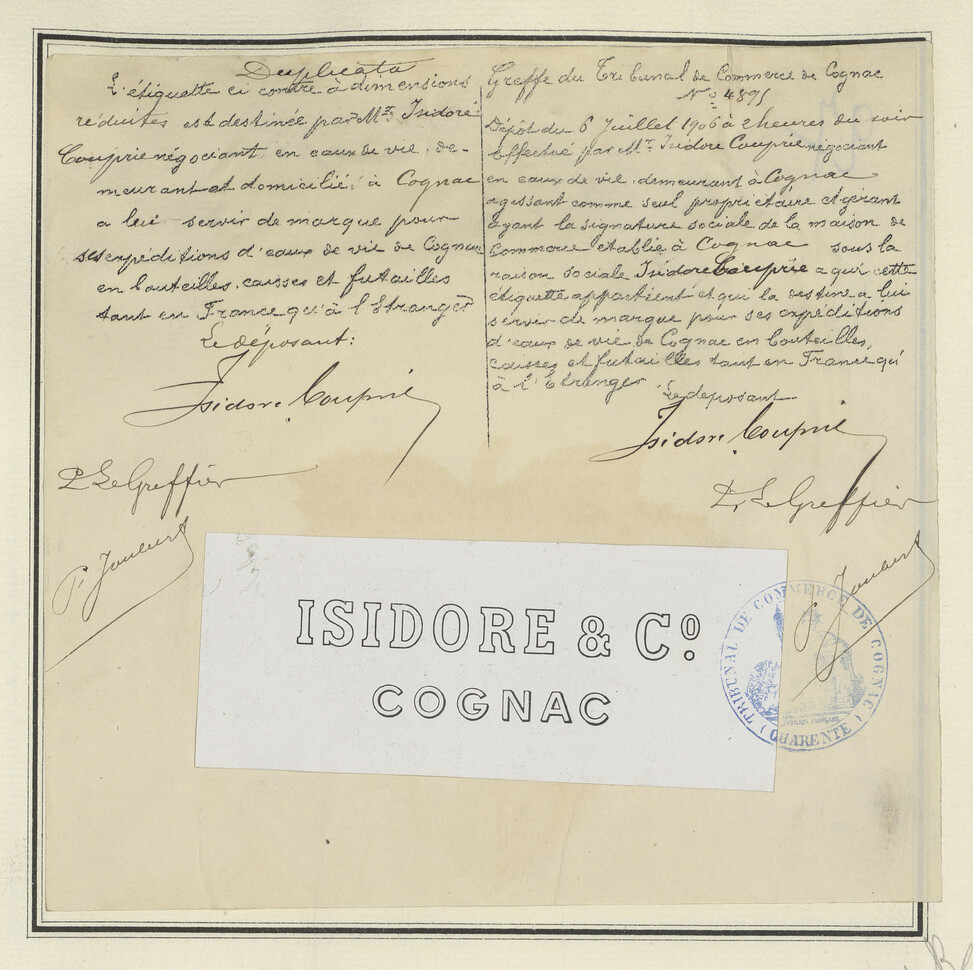 Duplicata
L'étiquette ci contre à dimensions
réduites est destinée par Mr Isidore
Couprie négociant en eaux de vie, de-
meurant et domicilié à Cognac
a lui servir de marque pour
ses expéditions d'eaux de vie de Cognac
en bouteilles, caisses et futailles
tant en France qu'à l'Etranger
Le déposant:
Isidore Couprie
P. Le Greffier
Greffe du Tribunal de Commerce de Cognac
No 4895
Dépôt du 6 Juillet 1906 à 2 heures du soir
Effectué par Mr Isidore Couprie négociant
en eaux de vie, demeurant à Cognac
agissant comme seul propriétaire et gérant
ayant la signature sociale de la maison de
Commerce établie à Cognac sous la
raison sociale Isidore Couprie a qui cette
étiquette appartient et qui la destine a lui
servir de marque pour ses expéditions
d'eaux de vie de Cognac en bouteilles,
caisses et futailles tant en France qu'
à l'Etranger
Le déposant
Isidore Couprie
P. Le Greffier
ISIDORE & Co.
COGNAC
TRIBUNAL DE COMMERCE DE COGNAC
(CHARENTE)